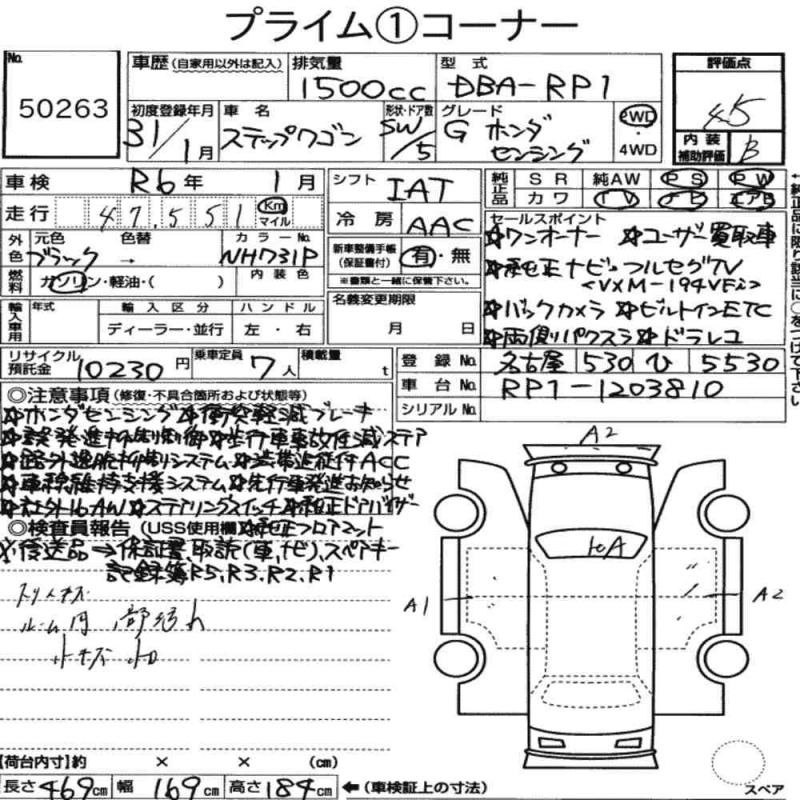 プライム①コーナー
No. 50263
車歴 (自家用以外は記入) 排気量 1500cc 型式 DBA-RP1
評価点 4.5
初度登録年月 31/1月 車名 ステップワゴン 形状・ドア数 SW/5 グレード G ホンダセンシング 2WD・4WD
内装補助評価 B
車検 R6年 1月 シフト IAT 純正品 SR 純AW PS PW
走行 47,551 Km マイル 冷房 AAC カワ TV ナビ エアB
←純正品に限り該当に○をつけて下さい
外色 元色 ブラック → 色替 カラーNo. NH731P
新車整備手帳(保証書付) 有・無
※書類と一緒に保管下さい。
セールスポイント
☆ワンオーナー ☆ユーザー買取車
☆純正ナビ・フルセグTV
<VXM-194VFi>
☆バックカメラ ☆ビルトインETC
☆両側パワスラ ☆ドラレコ
燃料 ガソリン・軽油・( ) 内装色
名義変更期限 月 日
輸入車用 年式 輸入区分 ハンドル
ディーラー・並行 左・右
リサイクル預託金 10230円 乗車定員 7人 積載量 t
登録No. 名古屋 530 ひ 5530
車台No. RP1-1203810
シリアルNo.
◎注意事項 (修復・不具合箇所および状態等)
☆ホンダセンシング ☆衝突軽減ブレーキ
☆誤発進抑制制御 ☆歩行車事故低減ステア
☆路外逸脱抑制システム ☆渋滞追従付ACC
☆車線維持支援システム ☆先行車発進お知らせ
☆社外16AW ☆ステアリングスイッチ ☆純正ドアバイザー
◎検査員報告 (USS使用欄) ☆純正フロアマット
※後送品→保証書、取説(車、ナビ)、スペアキー
記録簿R5、R3、R2、R1
スリキズ
ルーム内 一部汚れ
小キズ 小凹
A2
A1
A2
スペア
【荷台内寸】約 × × (cm)
長さ 469cm 幅 169cm 高さ 184cm ←(車検証上の寸法)